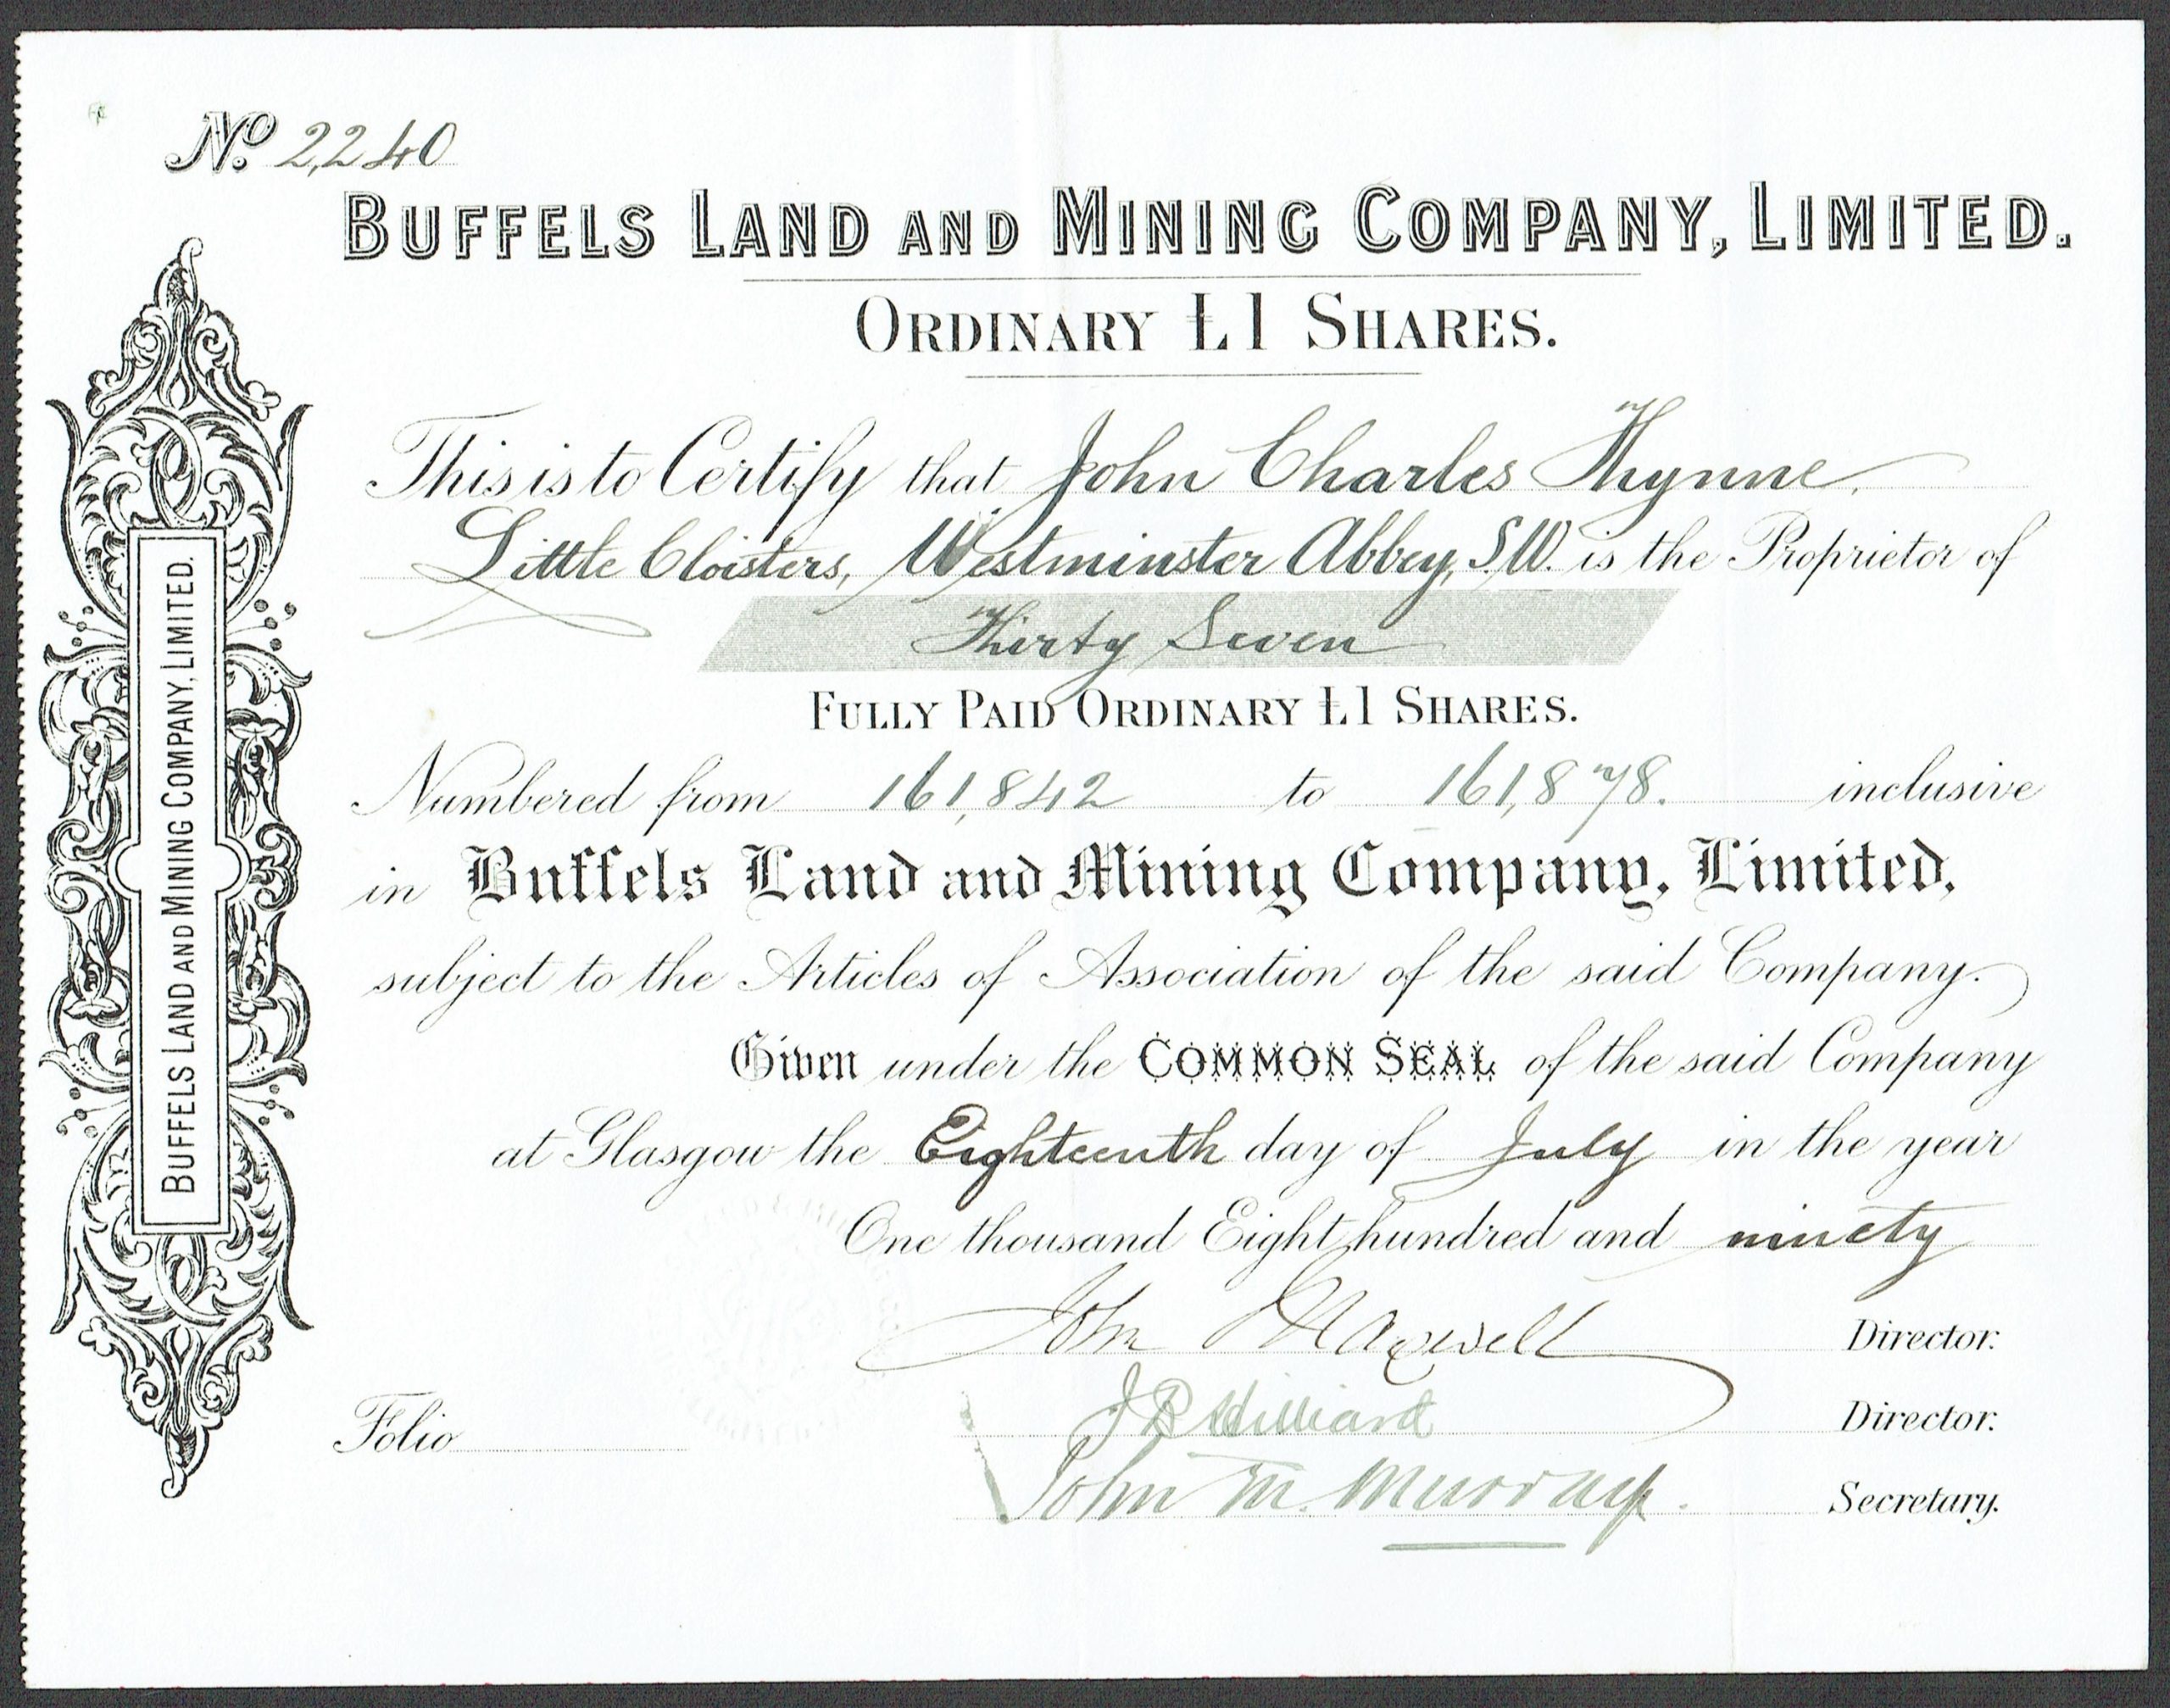 No. 2,240
BUFFELS LAND AND MINING COMPANY, LIMITED.
ORDINARY £1 SHARES.
This is to Certify that John Charles Thynne,
Little Cloisters, Westminster Abbey, S.W. is the Proprietor of
Thirty Seven
FULLY PAID ORDINARY £1 SHARES.
Numbered from 161,842 to 161,878. inclusive
in Buffels Land and Mining Company, Limited,
subject to the Articles of Association of the said Company.
Given under the COMMON SEAL of the said Company
at Glasgow the Eighteenth day of July in the year
One thousand Eight hundred and ninety
John Maxwell Director.
J B Hilliard Director.
Folio
John M. Murray. Secretary.
BUFFELS LAND AND MINING COMPANY, LIMITED.